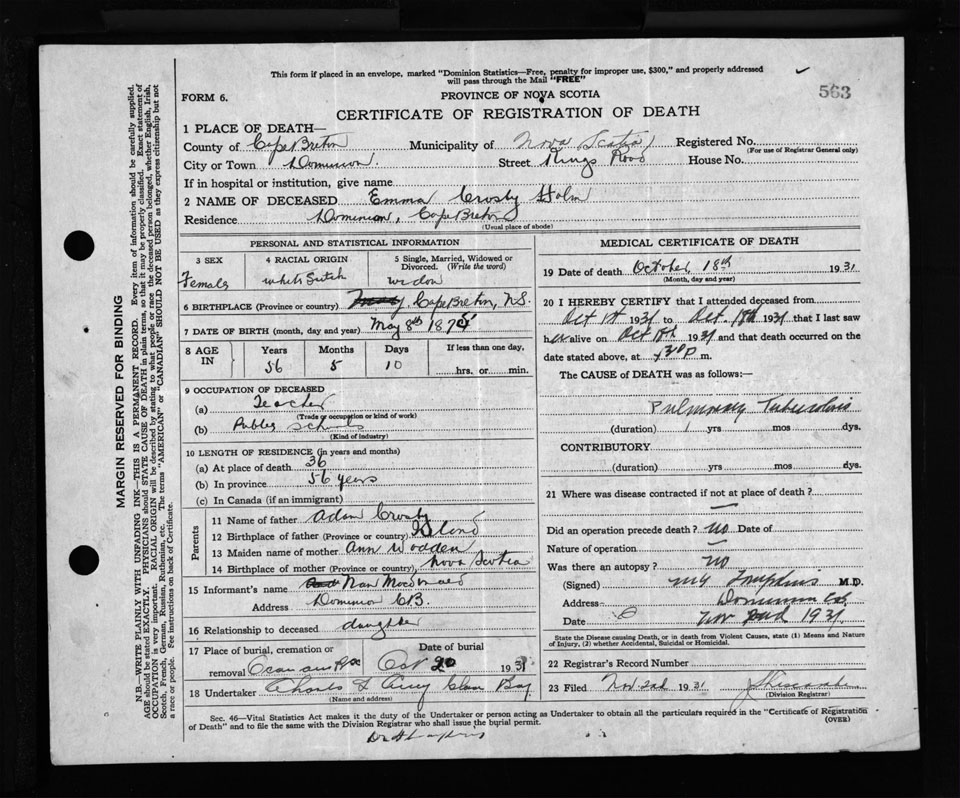 This form if placed in an envelope, marked "Dominion Statistics—Free, penalty for improper use, $300," and properly addressed
will pass through the Mail "FREE"
563
FORM 6.
PROVINCE OF NOVA SCOTIA
CERTIFICATE OF REGISTRATION OF DEATH
1 PLACE OF DEATH—
County of Cape Breton Municipality of Nova Scotia Registered No.
(For use of Registrar General only)
City or Town Dominion Street Kings Road House No.
If in hospital or institution, give name
2 NAME OF DECEASED Emma Crosby
Residence Dominion, Cape Breton
(Usual place of abode)
PERSONAL AND STATISTICAL INFORMATION
3 SEX 4 RACIAL ORIGIN 5 Single, Married, Widowed or Divorced. (Write the word)
Female white widow
6 BIRTHPLACE (Province or country) Cape Breton, N.S.
7 DATE OF BIRTH (month, day and year) May 8th 1875
8 AGE IN Years Months Days If less than one day,
56 5 10 hrs. or min.
9 OCCUPATION OF DECEASED
(a) Teacher
(Trade or occupation or kind of work)
(b) Public Schools
(Kind of industry)
10 LENGTH OF RESIDENCE (in years and months)
(a) At place of death 36
(b) In province 56 years
(c) In Canada (if an immigrant)
Parents
11 Name of father Adam Crosby
12 Birthplace of father (Province or country)
13 Maiden name of mother Ann Wodden
14 Birthplace of mother (Province or country) Nova Scotia
15 Informant's name Nan Macdonald
Address Dominion C.B.
16 Relationship to deceased daughter
17 Place of burial, cremation or removal Date of burial
Oct 20 1931
18 Undertaker Glace Bay
(Name and address)
MEDICAL CERTIFICATE OF DEATH
19 Date of death October 18th 1931
(Month, day and year)
20 I HEREBY CERTIFY that I attended deceased from
Oct 1st 1931 to Oct. 18th 1931 that I last saw
her alive on Oct 1931 and that death occurred on the
date stated above, at m.
The CAUSE of DEATH was as follows:—
Pulmonary Tuberculosis
(duration) yrs mos dys.
CONTRIBUTORY
(duration) yrs mos dys.
21 Where was disease contracted if not at place of death?
Did an operation precede death? no Date of
Nature of operation
Was there an autopsy? no
(Signed) Tompkins M.D.
Address Dominion C.B.
Date Nov 2nd 1931
State the Disease causing Death, or in death from Violent Causes, state (1) Means and Nature
of Injury, (2) whether Accidental, Suicidal or Homicidal.
22 Registrar's Record Number
23 Filed Nov 2nd 1931
(Division Registrar)
Sec. 46—Vital Statistics Act makes it the duty of the Undertaker or person acting as Undertaker to obtain all the particulars required in the "Certificate of Registration
of Death" and to file the same with the Division Registrar who shall issue the burial permit.
(OVER)
MARGIN RESERVED FOR BINDING
N.B.—WRITE PLAINLY WITH UNFADING INK—THIS IS A PERMANENT RECORD. Every item of information should be carefully supplied.
AGE should be stated EXACTLY. PHYSICIANS should STATE CAUSE OF DEATH in plain terms, so that it may be properly classified. Exact statement of
OCCUPATION is very important. RACIAL ORIGIN will be described by stating to what people or race the deceased person belonged, whether English, Irish,
Scotch, French, German, Russian, Ruthenian, etc. The terms "AMERICAN" or "CANADIAN" SHOULD NOT BE USED as they express citizenship but not
a race or people. See instructions on back of Certificate.